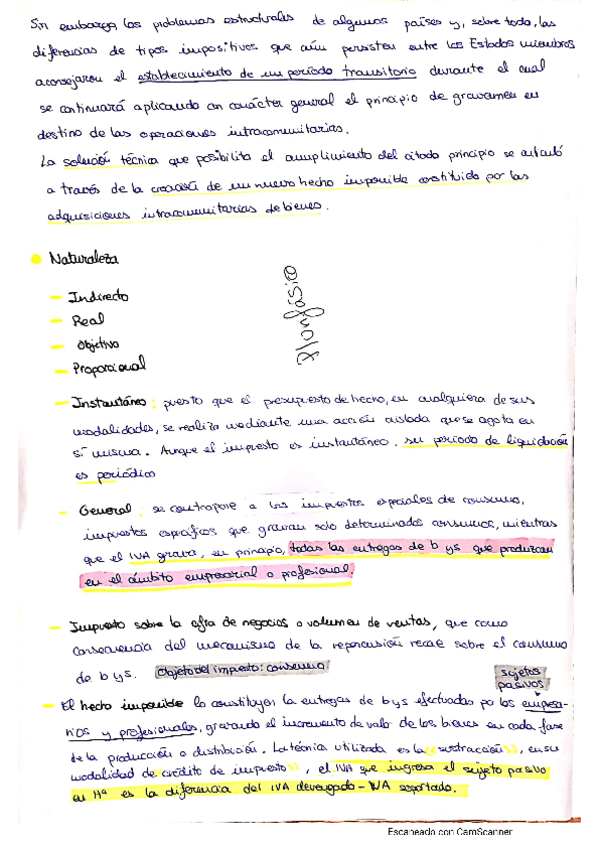 Sin embargo, los problemas estructurales de algunos países y, sobre todo, las
diferencias de tipos impositivos que aún persisten entre los Estados miembros
aconsejaron el establecimiento de un período transitorio durante el cual
se continuará aplicando con carácter general el principio de gravamen en
destino de las operaciones intracomunitarias.
La solución técnica que posibilita el cumplimiento del citado principio se articuló
a través de la creación de un nuevo hecho imponible constituido por las
adquisiciones intracomunitarias de bienes.
Naturaleza
- Indirecto
- Real
- Objetivo
- Proporcional
Plurifásico
- Instantáneo: puesto que el presupuesto de hecho, en cualquiera de sus
modalidades, se realiza mediante una acción aislada que se agota en
sí misma. Aunque el impuesto es instantáneo, su período de liquidación
es periódico
- General: se contrapone a los impuestos especiales de consumo,
impuestos específicos que gravan solo determinados consumos, mientras
que el IVA grava, en principio, todas las entregas de b y s que produzcan
en el ámbito empresarial o profesional.
- Impuesto sobre la cifra de negocios o volumen de ventas, que como
consecuencia del mecanismo de la repercusión recae sobre el consumo
de b y s. Objeto del impuesto: consumo
sujetos
pasivos
- El hecho imponible lo constituyen la entregas de b y s efectuadas por los empresa-
rios y profesionales, gravando el incremento de valor de los bienes en cada fase
de la producción o distribución. La técnica utilizada es la <<sustracción>>, en su
modalidad de crédito de impuesto>>, el IVA que ingresa el sujeto pasivo
en Hª es la diferencia del IVA devengado - IVA soportado.
Escaneado con CamScanner